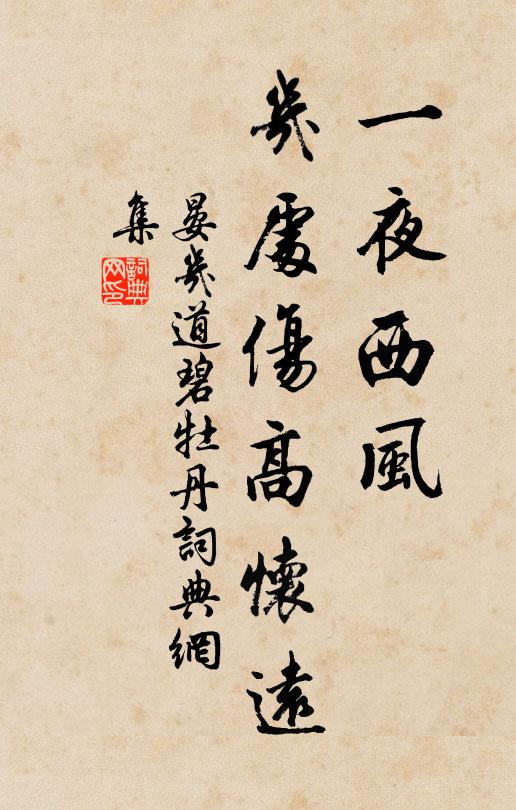 一夜西風
幾處傷高懷遠
晏幾道碧牡丹詞典網
集
詞典
网印